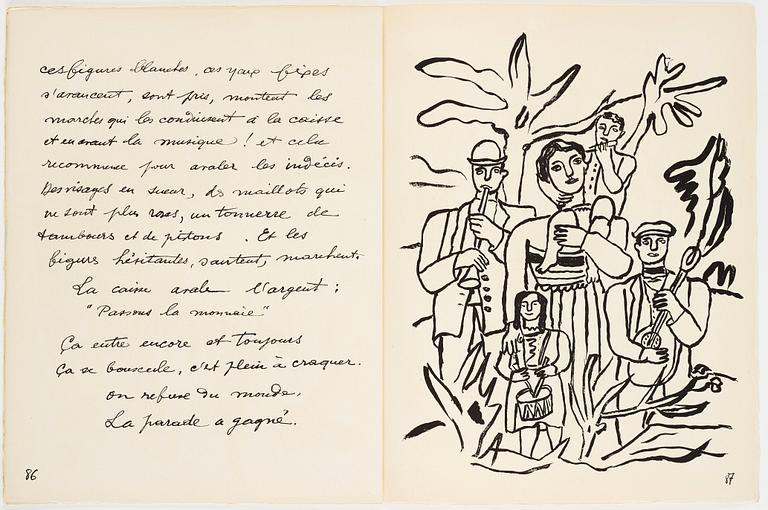 ces figures blanches, ces yeux fixes
s'avancent, sont pris, montent les
marches qui les conduisent à la caisse
et en avant la musique ! et cela
recommence pour avaler les indécis.
Des visages en sueur, des maillots qui
ne sont plus roses, un tonnerre de
tambours et de pistons. Et les
figures hésitantes, sautent, marchent.
La caisse avale l'argent :
"Passons la monnaie"
Ça entre encore et toujours
Ça se bouscule, c'est plein à craquer.
on refuse du monde.
La parade a gagné.
86
87